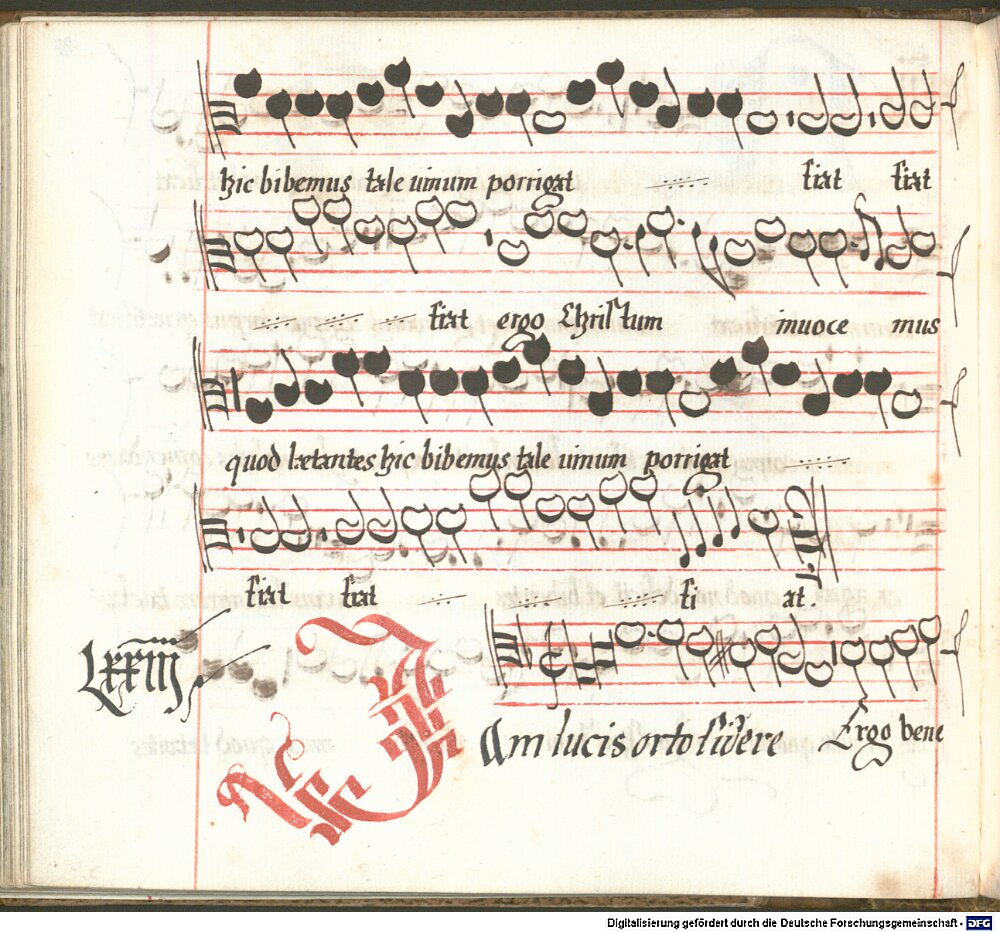 hic bibemus tale uinum porrigat fiat fiat
fiat ergo Christum inuoce mus
quod lætantes hic bibemus tale uinum porrigat
fiat fiat fi at.
Lxxiiij
Iam lucis orto sidere Ergo bene
Digitalisierung gefördert durch die Deutsche Forschungsgemeinschaft - DFG